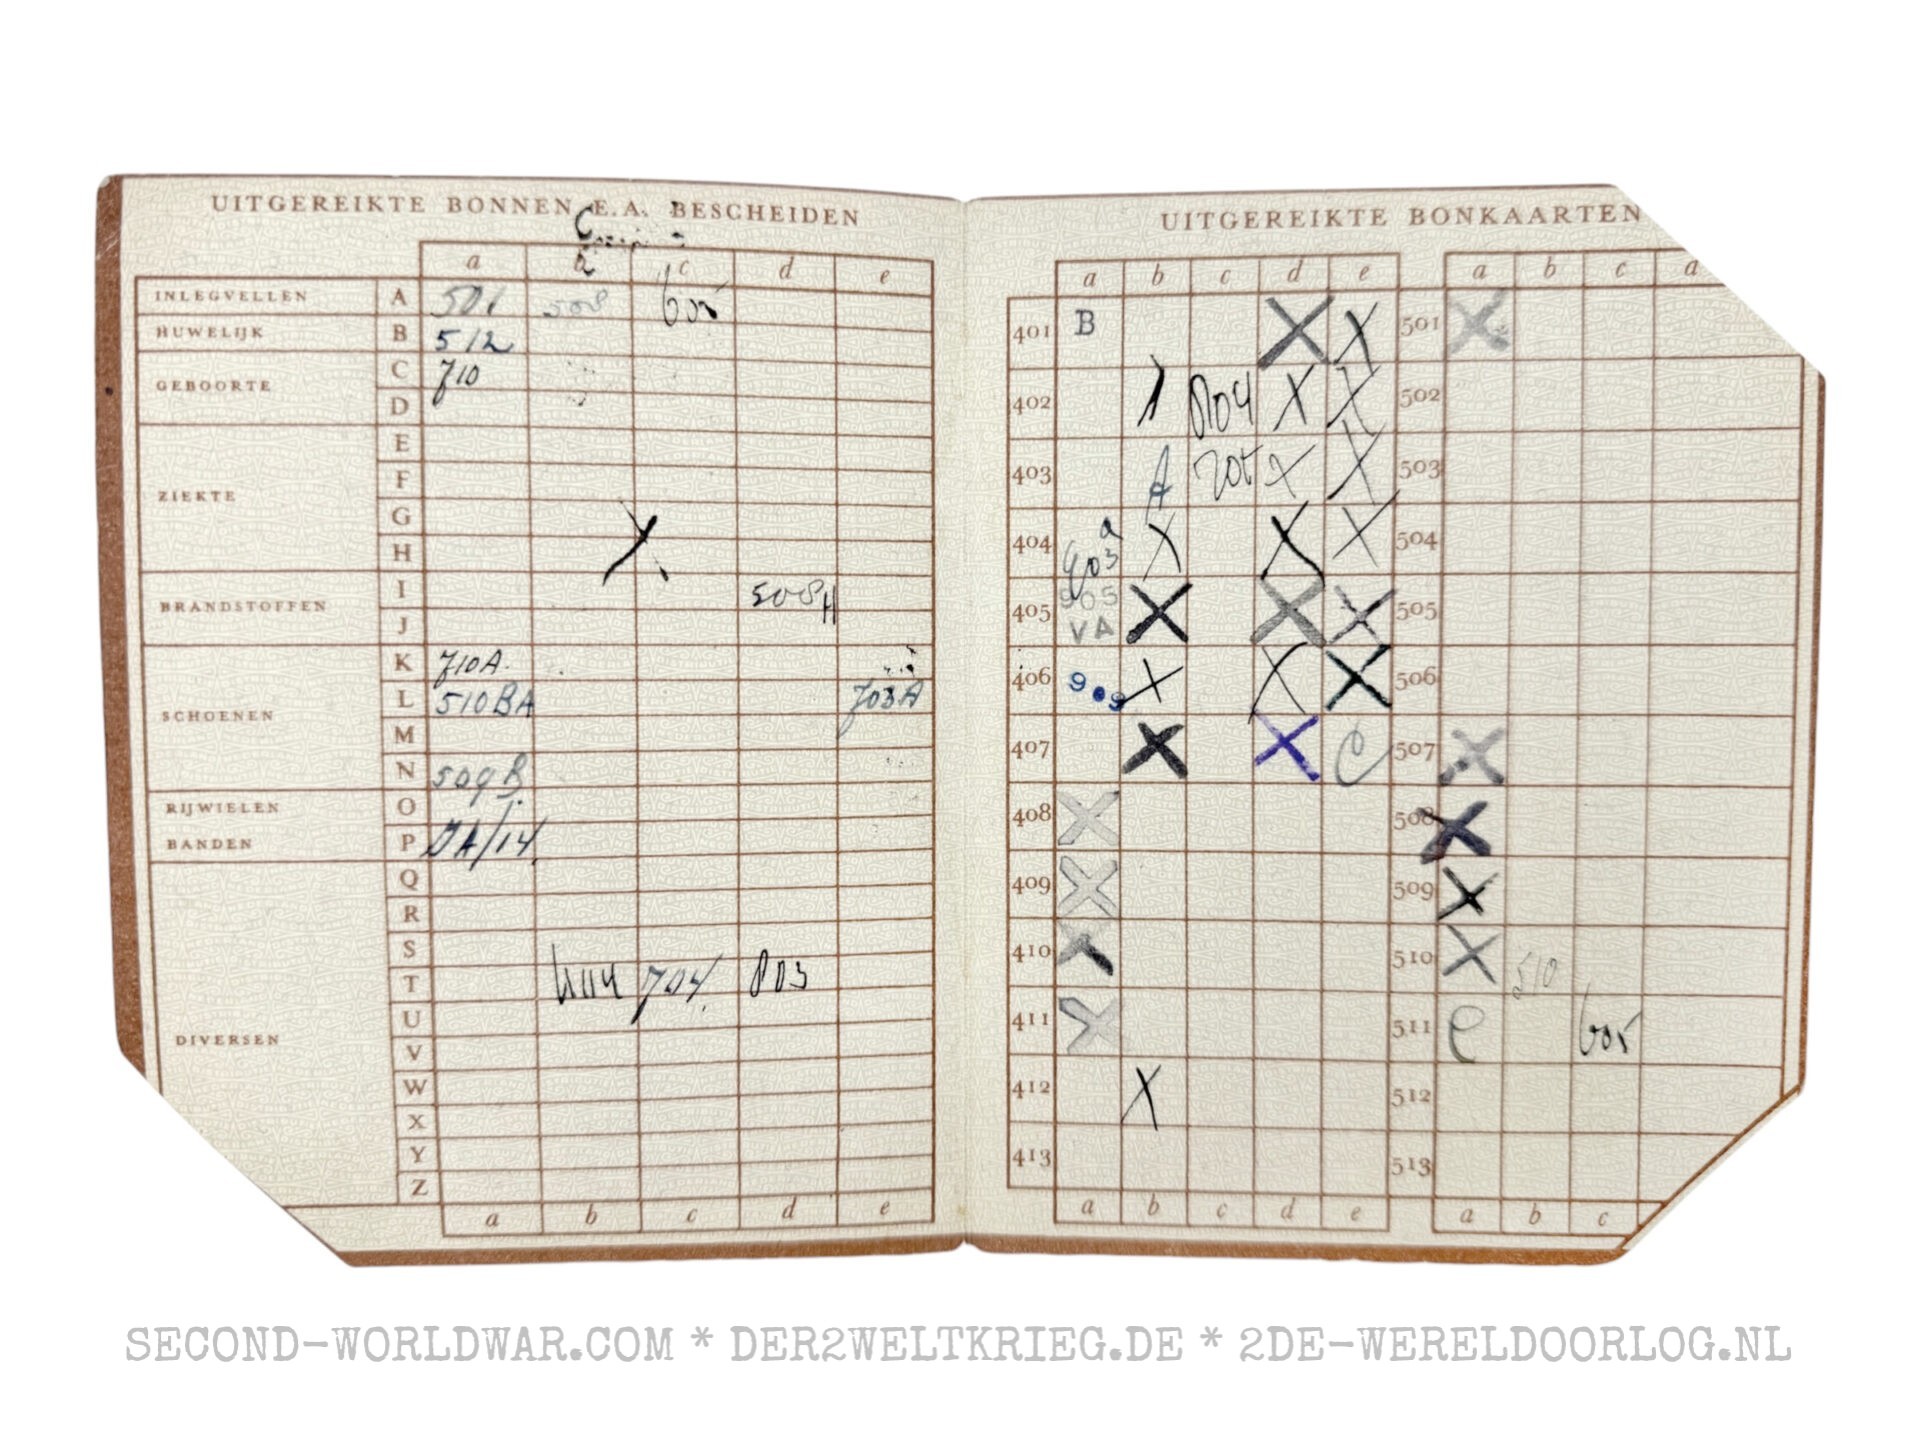 UITGEREIKTE BONNEN E.A. BESCHEIDEN
a b c d e
INLEGVELLEN A 501 508 605
HUWELIJK B 512
GEBOORTE C 710
D
E
F
ZIEKTE
G
H
BRANDSTOFFEN I 508H
J
K 710A.
L 510BA 703A
SCHOENEN
M
N 509B
RIJWIELEN O
BANDEN P
Q
R
S
T 704 803
U
DIVERSEN
V
W
X
Y
Z
a b c d e
UITGEREIKTE BONKAARTEN
a b c d e a b c d
401 B X X 501 X
402 804 X X 502
403 A 705 X X 503
404 903 a X X X 504
405 905 VA X X X 505
406 9 9 X X X 506
407 X X C 507 X
408 X 508 X
409 X 509 X
410 X 510 X 510
411 X 511 C 605
412 X 512
413 513
a b c d e a b c
SECOND-WORLDWAR.COM * DER2WELTKRIEG.DE * 2DE-WERELDOORLOG.NL